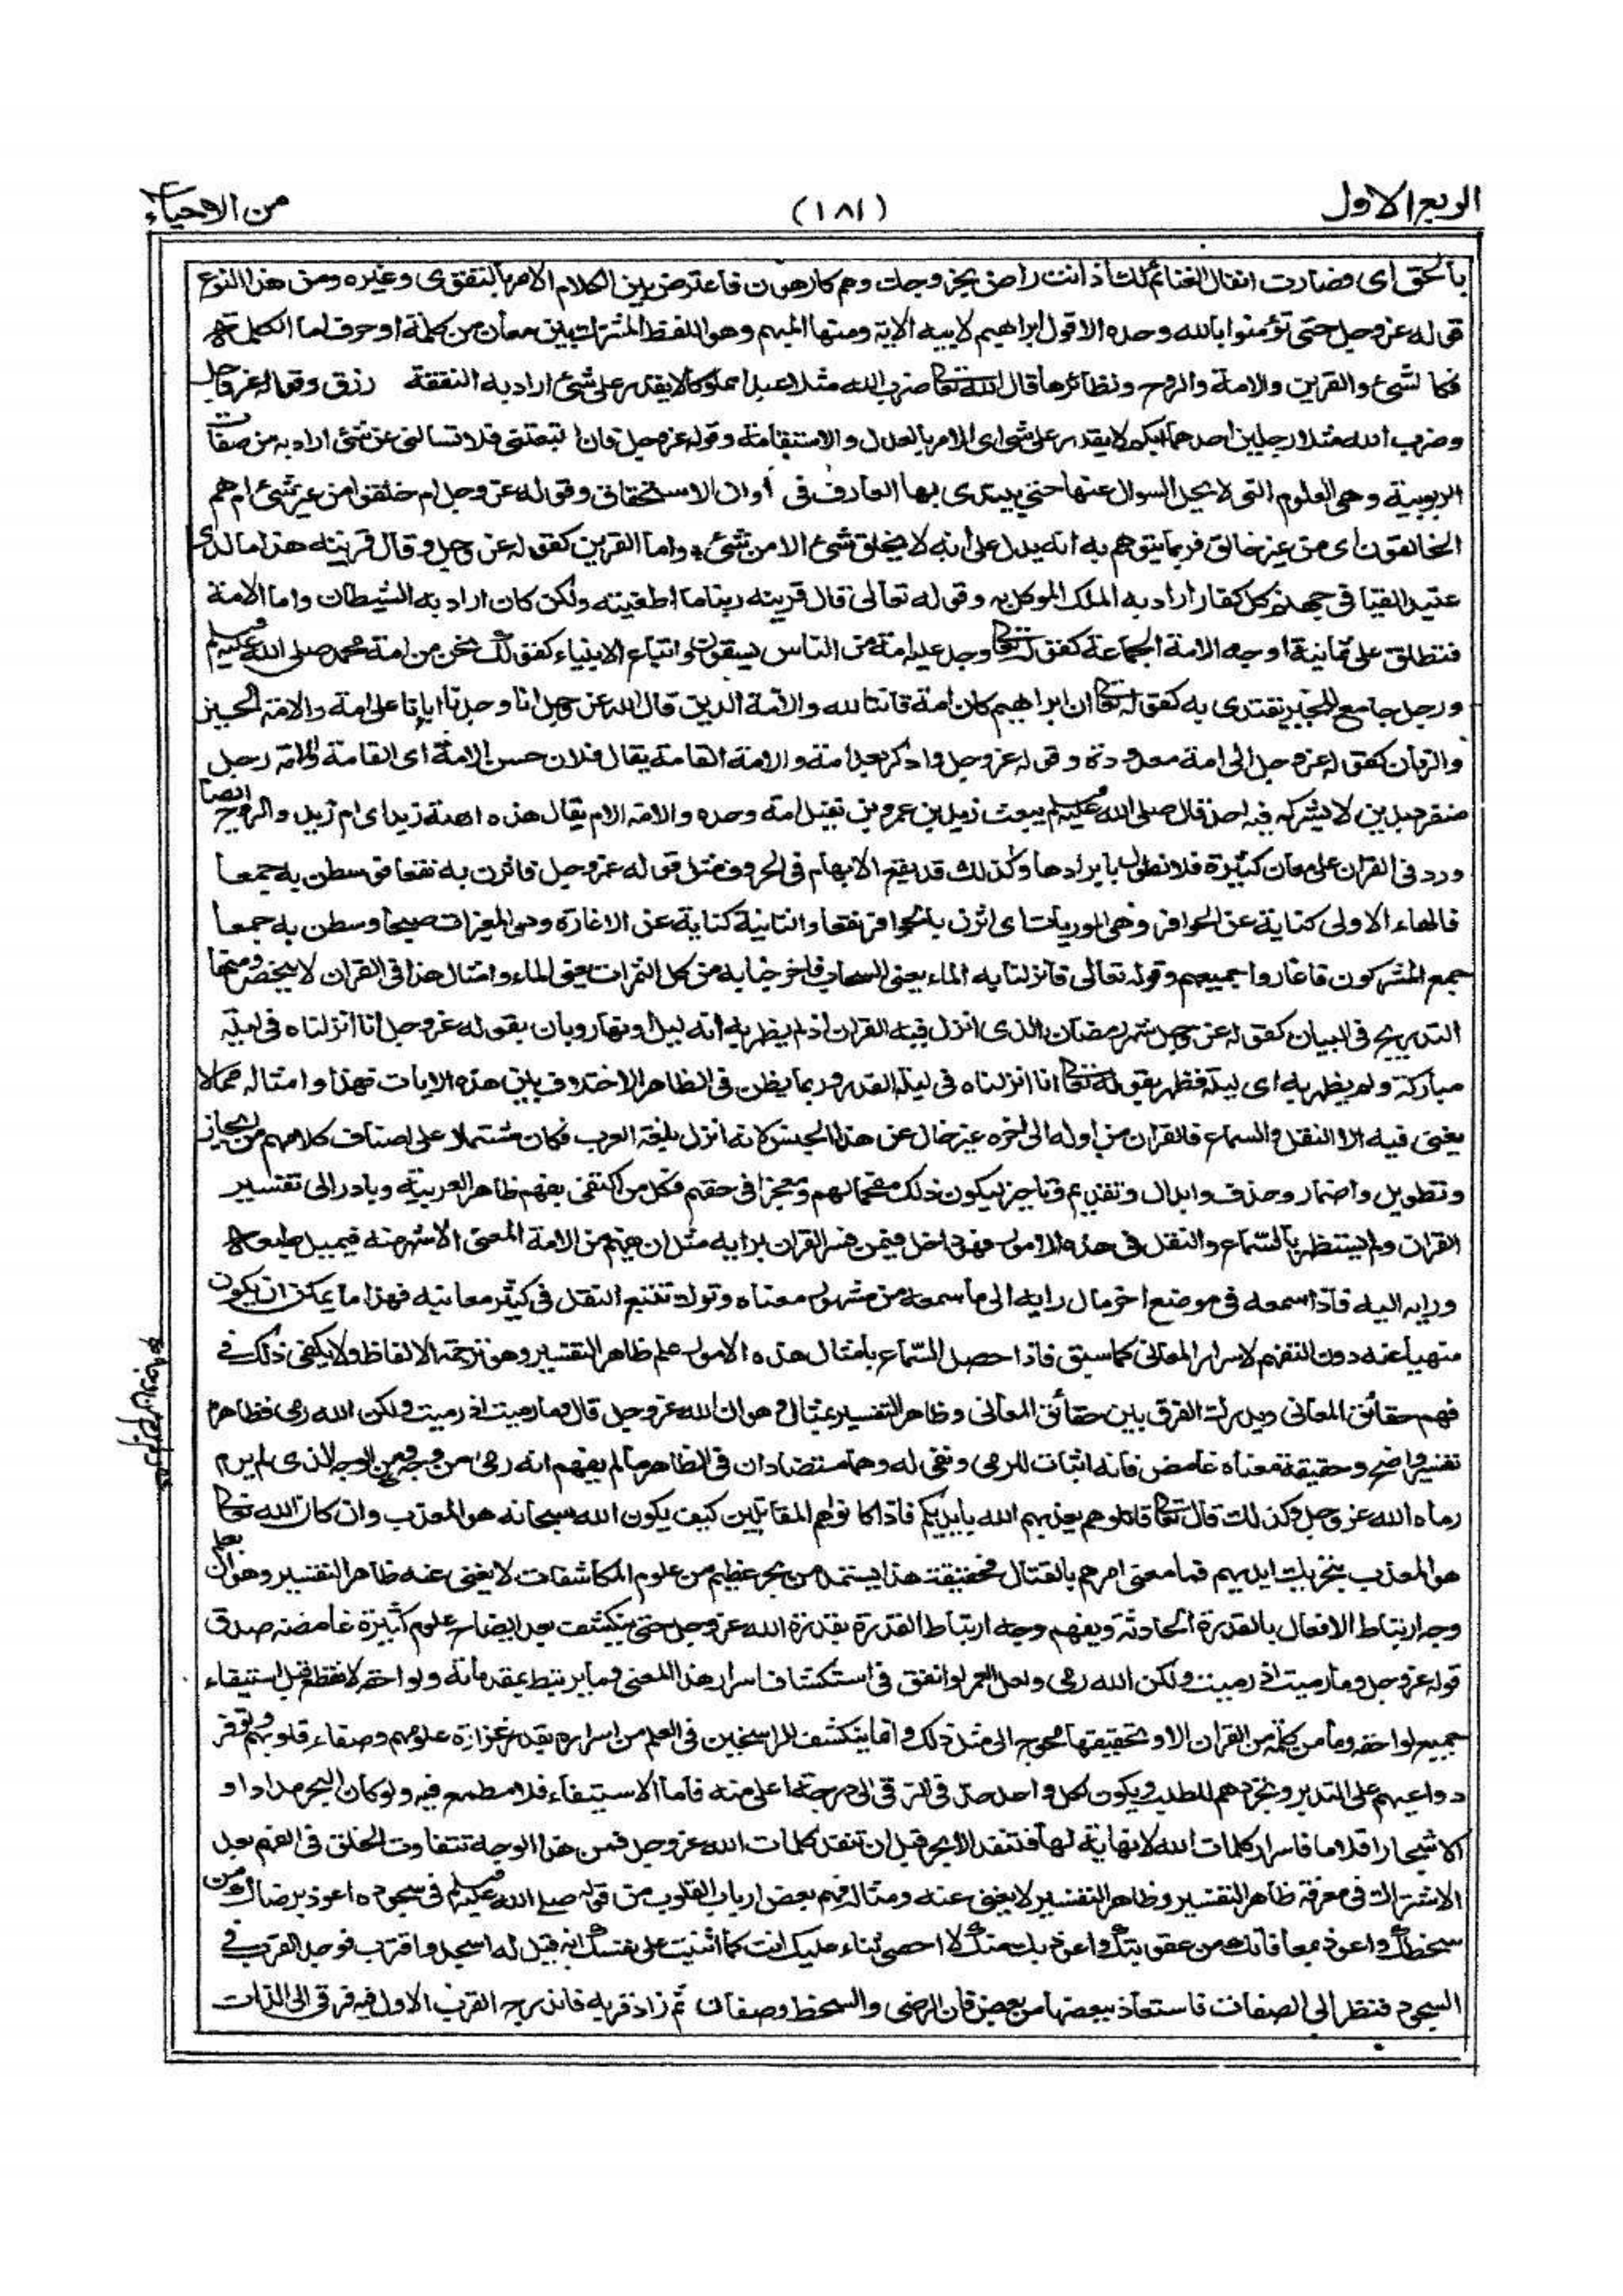 الربع الاول
(١٨١)
من الاحياء
بالحق اى فصارت انفال الغنائم لك اذ انت راض بخروجك وهم كارهون فاعترض بين الكلام الامر بالتقوى وغيره ومن هذا النوع
قوله عز وجل حتى تؤمنوا بالله وحده الا قول ابراهيم لابيه الاية ومنها المبهم وهو اللفظ المشترك بين معان من كلمة او حرف اما الكلمة
فكا لشئ والقرين والامة والروح ونظائرها قال الله تعا ضرب الله مثلا عبدا مملوكا لا يقدر على شئ اراد به النفقة رزق وقوله عز وجل
وضرب الله مثلا رجلين احدهما ابكم لا يقدر على شئ اى الامر بالعدل والاستقامة وقوله عز وجل فان اتبعتنى فلا تسالنى عن شئ اراد به من صفات
الربوبية وهى العلوم التى لا يحل السوال عنها حتى يبتدى بها العارف فى اوان الاستحقاق وقوله عز وجل ام خلقوا من غير شئ ام هم
الخالقون اى من غير خالق فربما يتوهم به انه يدل على انه لا يخلق شئ الا من شئ واما القرين كقوله عز وجل وقال قرينه هذا ما لدى
عتيد القيا فى جهنم كل كفار اراد به الملك الموكل به وقوله تعالى قال قرينه ربنا ما اطغيته ولكن كان اراد به الشيطان واما الامة
فتطلق على ثمانية اوجه الامة الجماعة كقوله تعا وجد عليه امة من الناس يسقون واتباع الانبياء كقولك نحن من امة محمد صلى الله عليه وسلم
ورجل جامع للخير يقتدى به كقوله تعا ان ابراهيم كان امة قانتا لله والامة الدين قال الله عز وجل انا وجدنا اباءنا على امة والامة الحين
والزمان كقوله عز وجل الى امة معدودة وقوله عز وجل وادكر بعد امة والامة القامة يقال فلان حسن الامة اى القامة وامة رجل
منفرد بدين لا يشركه فيه احد قال صلى الله عليه وسلم يبعث زيد بن عمرو بن نفيل امة وحده والامة الام يقال هذه امة زيد اى ام زيد والروح ايضا
ورد فى القران على معان كثيرة فلا نطول بايرادها وكذلك قد يقع الابهام فى الحروف مثل قوله عز وجل فاثرن به نقعا فوسطن به جمعا
فالهاء الاولى كناية عن الحوافر وهى الموريات اى اثرن بالحوافر نقعا والثانية كناية عن الاغارة وهى المغيرات صبحا وسطن به جمعا
جمع المشركون فاغاروا جميعهم وقوله تعالى فانزلنا به الماء يعنى السحاب فاخرجنا به من كل الثمرات يعنى الماء وامثال هذا فى القران لا ينحصر ومنها
التدريج فى البيان كقوله عز وجل شهر رمضان الذى انزل فيه القران اذ لم يظهر به انه ليل او نهار وبان بقوله عز وجل انا انزلناه فى ليلة
مباركة ولم يظهر به اى ليلة فظهر بقوله تعا انا انزلناه فى ليلة القدر وربما يظن فى الظاهر الاختلاف بين هذه الايات فهذا وامثاله مما لا
يغنى فيه الا النقل والسماع فالقران من اوله الى اخره غير خال عن هذا الجنس لانه انزل بلغة العرب فكان مشتملا على اصناف كلامهم من ايجاز
وتطويل واضمار وحذف وابدال وتقديم وتاخير ليكون ذلك مفحما لهم ومعجزا فى حقهم فكل من اكتفى بفهم ظاهر العربية وبادر الى تفسير
القران ولم يستظهر بالسماع والنقل فى هذه الامور فهو داخل فيمن فسر القران برايه مثل ان يفهم من الامة المعنى الاشهر منه فيميل طبعه
ورايه اليه فاذا سمعه فى موضع اخر مال رايه الى ما سمعه من مشهور معناه وترك تتبع النقل فى كثير معانيه فهذا ما يمكن ان يكون
منهيا عنه دون التفهم لاسرار المعانى كما سبق فاذا حصل السماع بامثال هذه الامور علم ظاهر التفسير وهو ترجمة الالفاظ ولا يكفى ذلك فى
فهم حقائق المعانى ويدرك الفرق بين حقائق المعانى وظاهر التفسير بمثال وهو ان الله عز وجل قال وما رميت اذ رميت ولكن الله رمى فظاهره
تفسير واضح وحقيقة معناه غامض فانه اثبات للرمى ونفى له وهما متضادان فى الظاهر ما لم يفهم انه رمى من وجه ولم يرم من وجه ومن الوجه الذى لم يرم
رماه الله عز وجل وكذلك قال تعا قاتلوهم يعذبهم الله بايديكم فاذا كانوا هم المقاتلين كيف يكون الله سبحانه هو المعذب وان كان الله تعا
هو المعذب بتحريك ايديهم فما معنى امرهم بالقتال فحقيقة هذا يستمد من بحر عظيم من علوم المكاشفات لا يغنى عنه ظاهر التفسير وهو ان يعلم
وجه ارتباط الافعال بالقدرة الحادثة ويفهم وجه ارتباط القدرة بقدرة الله عز وجل حتى ينكشف بعد ايضاح علوم كثيرة غامضة صدق
قوله عز وجل وما رميت اذ رميت ولكن الله رمى ولعل العمر لو انفق فى استكشاف اسرار هذا المعنى وما يرتبط بمقدماته ولواحقه لانقطع قبل استيفاء
جميع لواحقه وما من كلمة من القران الا وتحقيقها محوج الى مثل ذلك وانما ينكشف للراسخين فى العلم من اسراره بقدر غزارة علومهم وصفاء قلوبهم وتوفر
دواعيهم على التدبر وتجردهم للطلب ويكون لكل واحد حد فى الترقى الى درجة اعلى منه فاما الاستيفاء فلا مطمع فيه ولو كان البحر مدادا و
الاشجار اقلاما فاسرار كلمات الله لا نهاية لها فتنفد الابحر قبل ان تنفد كلمات الله عز وجل فمن هذا الوجه تتفاوت الخلق فى الفهم بعد
الاشتراك فى معرفة ظاهر التفسير وظاهر التفسير لا يغنى عنه ومثاله فهم بعض ارباب القلوب من قوله صلى الله عليه وسلم فى سجوده اعوذ برضاك من
سخطك واعوذ بمعافاتك من عقوبتك واعوذ بك منك لا احصى ثناء عليك انت كما اثنيت على نفسك انه قيل له اسجد واقترب فوجد القرب فى
السجود فنظر الى الصفات فاستعاذ ببعضها من بعض فان الرضى والسخط وصفان ثم زاد قربه فاندرج القرب الاول فيه فرقى الى الذات